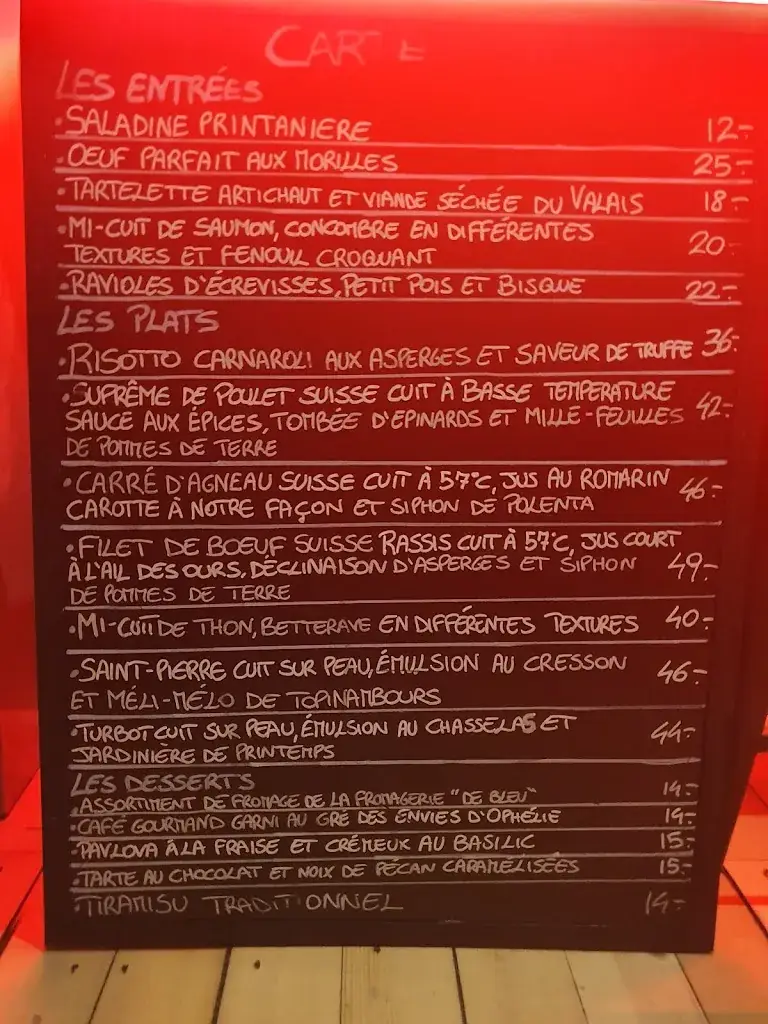 CARTE
LES ENTRÉES
•SALADINE PRINTANIERE 12.-
•OEUF PARFAIT AUX MORILLES 25.-
•TARTELETTE ARTICHAUT ET VIANDE SÉCHÉE DU VALAIS 18.-
•MI-CUIT DE SAUMON, CONCOMBRE EN DIFFÉRENTES
TEXTURES ET FENOUIL CROQUANT 20.-
•RAVIOLES D'ÉCREVISSES, PETIT POIS ET BISQUE 22.-
LES PLATS
•RISOTTO CARNAROLI AUX ASPERGES ET SAVEUR DE TRUFFE 36.-
•SUPRÊME DE POULET SUISSE CUIT À BASSE TEMPERATURE
SAUCE AUX ÉPICES, TOMBÉE D'EPINARDS ET MILLE-FEUILLES 42.-
DE POMMES DE TERRE
•CARRÉ D'AGNEAU SUISSE CUIT À 57°C, JUS AU ROMARIN 46.-
CAROTTE À NOTRE FAÇON ET SIPHON DE POLENTA
•FILET DE BOEUF SUISSE RASSIS CUIT À 57°C, JUS COURT
À L'AIL DES OURS, DÉCLINAISON D'ASPERGES ET SIPHON 49.-
DE POMMES DE TERRE
•MI-CUIT DE THON, BETTERAVE EN DIFFÉRENTES TEXTURES 40.-
•SAINT-PIERRE CUIT SUR PEAU, ÉMULSION AU CRESSON 46.-
ET MÉLI-MÉLO DE TOPINAMBOURS
•TURBOT CUIT SUR PEAU, ÉMULSION AU CHASSELAS ET 44.-
JARDINIÈRE DE PRINTEMPS
LES DESSERTS
•ASSORTIMENT DE FROMAGE DE LA FROMAGERIE "DE BLEU" 14.-
•CAFÉ GOURMAND GARNI AU GRÉ DES ENVIES D'OPHÉLIE 14.-
•PAVLOVA À LA FRAISE ET CRÉMEUX AU BASILIC 15.-
•TARTE AU CHOCOLAT ET NOIX DE PÉCAN CARAMÉLISÉES 15.-
•TIRAMISU TRADITIONNEL 14.-